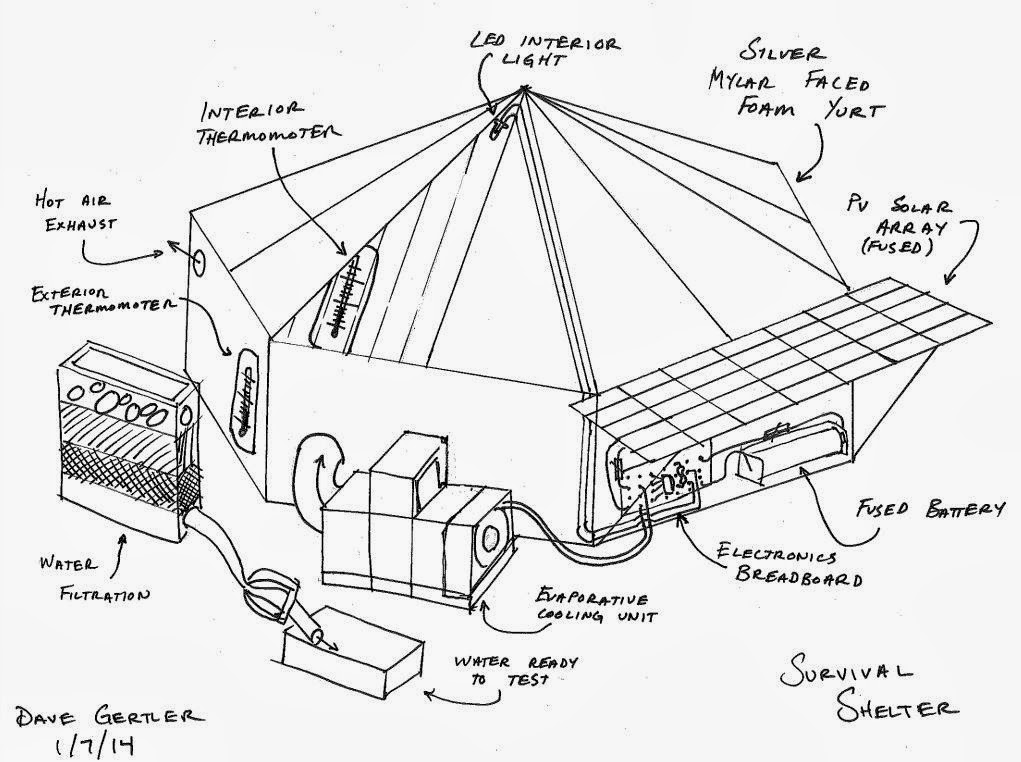 LED INTERIOR
LIGHT
SILVER
MYLAR FACED
FOAM YURT
INTERIOR
THERMOMOTER
HOT AIR
EXHAUST
PV SOLAR
ARRAY
(FUSED)
EXTERIOR
THERMOMOTER
FUSED BATTERY
WATER
FILTRATION
ELECTRONICS
BREADBOARD
EVAPORATIVE
COOLING UNIT
WATER READY
TO TEST
SURVIVAL
SHELTER
DAVE GERTLER
1/7/14